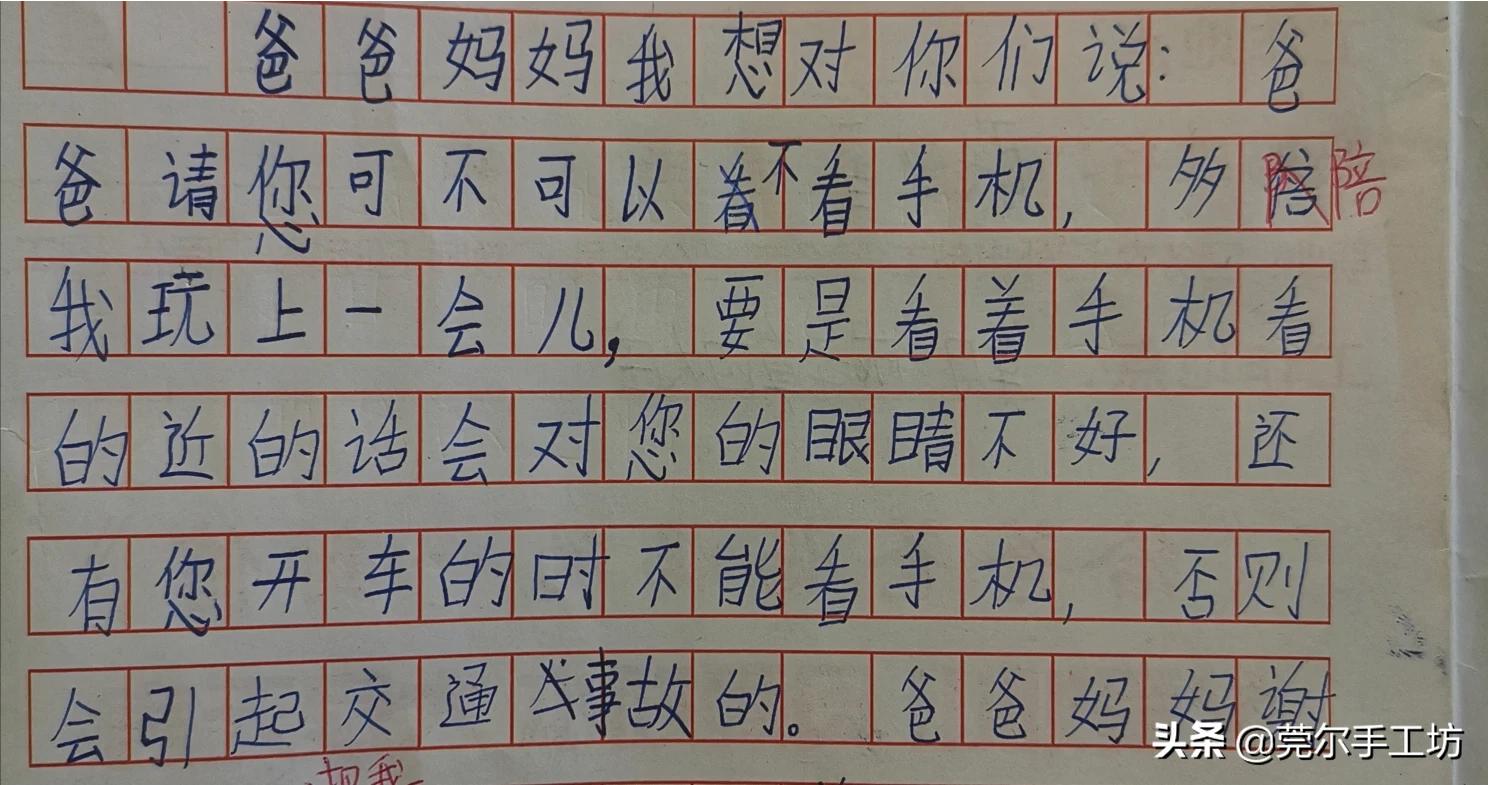 爸爸妈妈我想对你们说：爸
爸请您可不可以不看手机，多陪
我玩上一会儿，要是看着手机看
的近的话会对您的眼睛不好，还
有您开车的时不能看手机，否则
会引起交通事故的。爸爸妈妈谢
把我
头条 @莞尔手工坊